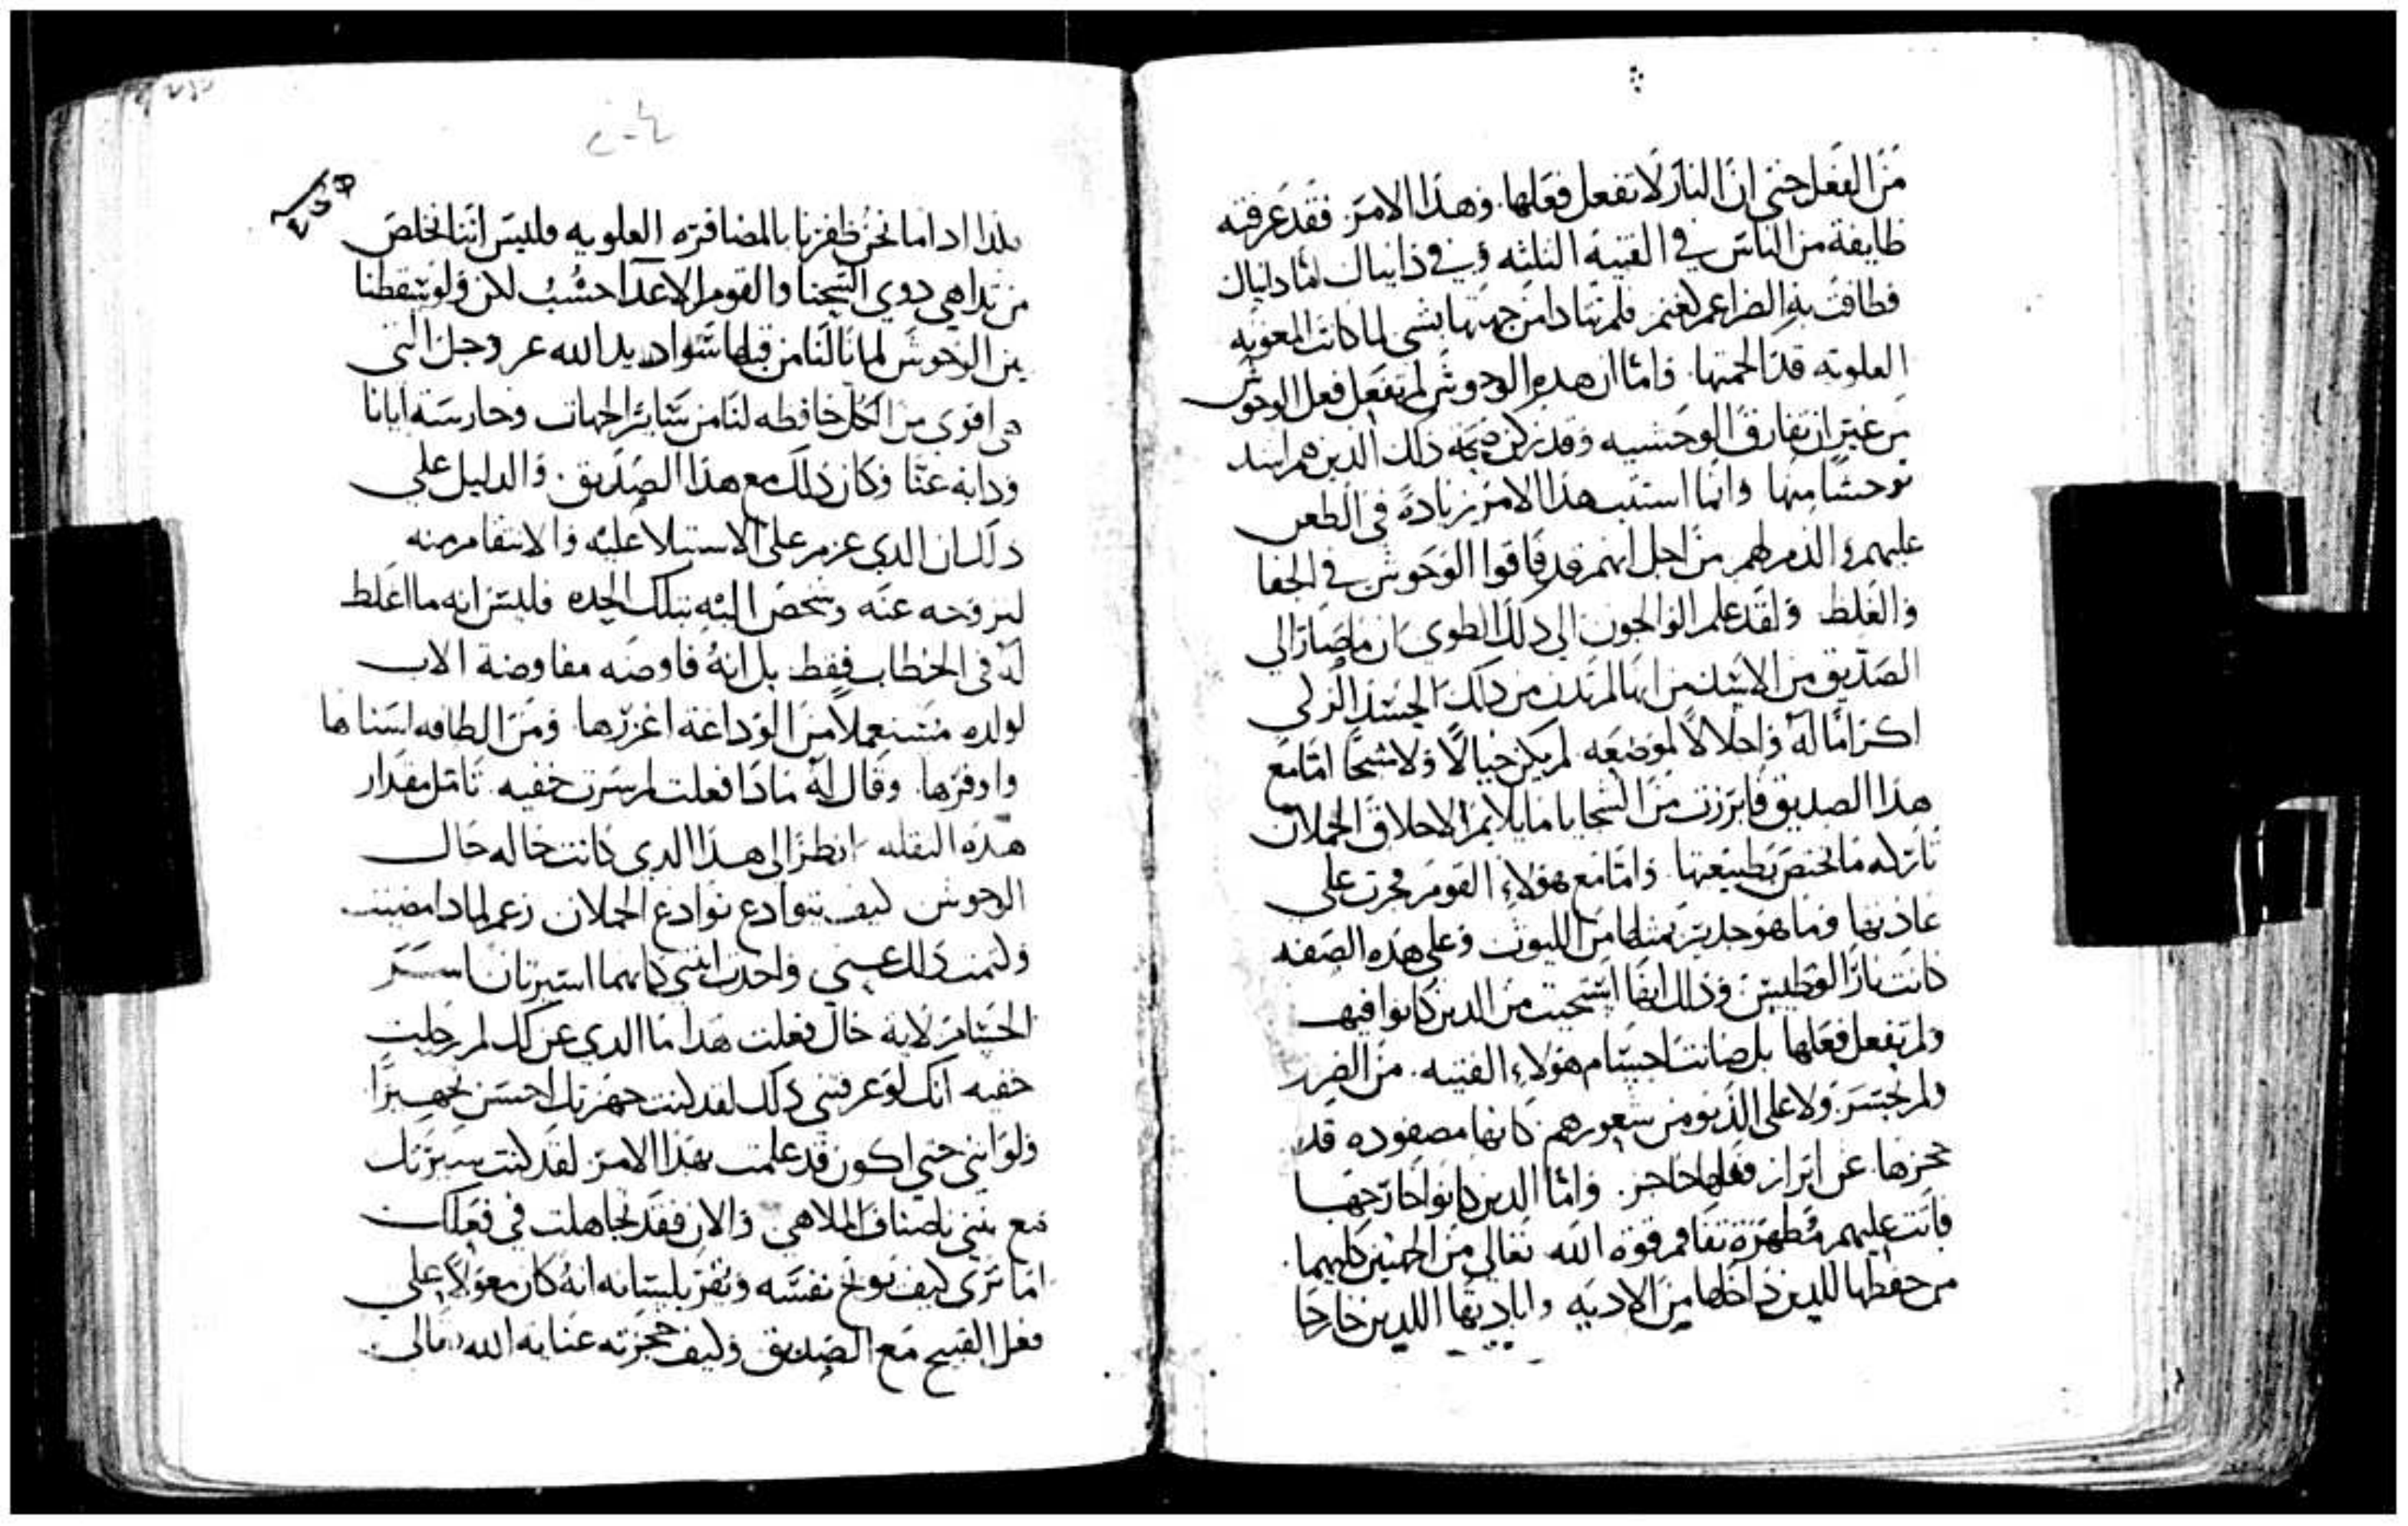 من الفعل حتى ان النار لا تفعل فعلها. وهذا الامر فقد عرفته
طايفة من الناس في الفتيه الثلثه وفي دانيال اما دانيال
فطافت به الضراغم لغنم فلم يتادا من جهتها بشى لما كانت المعونه
العلويه قد الجمتها. واما ان هذه الوحوش لم تفعل فعل الوحوش
من غير ان تفارق الوحشيه وقد زكن صحة ذلك الدين هم اشد
توحشا منها وانما استتب هذا الامر بزيادة في الطعن
عليهم والذم لهم من اجل انهم قد فاقوا الوحوش في الجفا
والغلظ ولقد علم الوالجون الى ذلك الطوى ان ما صار الى
الصديق من الاشد من انها لم تدن من ذلك الجسد الزكي
اكراما له واجلالا لموضعه لم يكن خيالا ولا شبحا اما مع
هذا الصديق فابرزت من السجايا ما يلايم الاخلاق الحملان
تاركه ما يختص بطبيعتها واما مع هولاء القوم فجرت على
عادتها وما هو جدير بمثلها من الليوث وعلى هذه الصفه
كانت نار الوطيس وذلك ايضا استحيت من الدين كانوا فيه
ولم تفعل فعلها بل صانت اجسام هولاء الفتيه من الضرر
ولم تجسر ولا على الدنو من شعورهم كانها مصفوده قد
حجزها عن ابراز فعلها حاجز. واما الدين كانوا خارجها
فاتت عليهم مظهرة تفاقم قوة الله تعالى من الجهتين كليهما
من حفظها للدين داخلها من الاديه وابادتها اللدين خارجا
فلذا ادا ما نحن ظفرنا بالمضافره العلويه فليس اننا نخلص
من تداهي دوي الشحنا والقوم الاعدا حسب لكن ولو سقطنا
بين الوحوش لما نالنا من قبلها سوا د يد الله عز وجل التى
هى اقوى من الكل حافظه لنا من سائر الجهات وحارسة ايانا
ودابه عنا وكان ذلك مع هذا الصديق. والدليل على
دلك ان الدي عزم على الاستيلا عليه والانتقام منه
لنزوحه عنه وشخص اليه بتلك الحده فليس انه ما اغلظ
له فى الخطاب فقط بل انه فاوضه مفاوضة الاب
لولده مستعملا من الوداعة اغزرها ومن الطافه اسناها
واوفرها وقال له مادا فعلت لم سرت خفيه تامل مقدار
هذه النقله انظر الى هذا الدي كانت حاله حال
الوحوش كيف يتوادع توادع الحملان زعم لمادا مضيت
وكتمت ذلك عني واخدت ابنتي كانهما استيرتان استر
الحسام لاية حال فعلت هذا ما الدي عن لك لم رحلت
خفيه انك لو عرفتني ذلك لقد كنت جهزتك احسن تجهيزا
ولو انني حتى اكون قد علمت بهذا الامر لقد كنت سيرتك
مع بنتي باصناف الملاهي والان فقد تجاهلت في فعلك
اما ترى كيف يوبخ نفسه ويقر بلسانه انه كان معولا على
فعل القبيح مع الصديق وكيف حجزته عناية الله تعالى